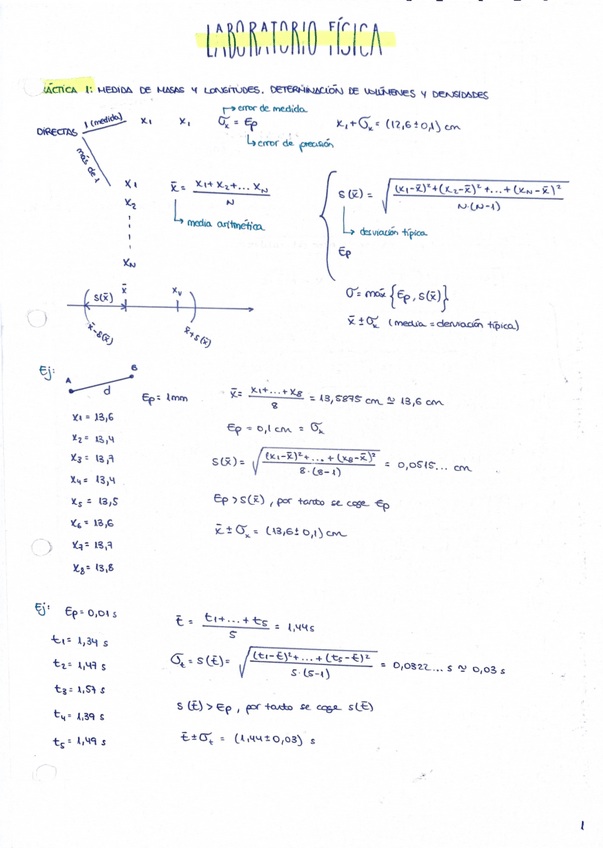 LABORATORIO FÍSICA
ÁCTICA 1: MEDIDA DE MASAS Y LONGITUDES. DETERMINACIÓN DE VOLÚMENES Y DENSIDADES
DIRECTAS
1 (medida)
x₁ x₁ σₓ = Ep
error de medida
error de precisión
x₁ + σₓ = (12,6 ± 0,1) cm
más de 1
x₁
x₂
xN
x̄ = (x₁ + x₂ + ... xN) / N
media aritmética
s(x̄) = √(((x₁-x̄)² + (x₂-x̄)² + ... + (xN-x̄)²) / (N·(N-1)))
desviación típica
Ep
σ = máx {Ep, s(x̄)}
x̄ ± σₓ (media = desviación típica)
s(x̄) x̄ xᵥ
x̄-s(x̄) x̄+s(x̄)
Ej:
A B
d
Ep = 1mm
x₁ = 13,6
x₂ = 13,4
x₃ = 13,7
x₄ = 13,4
x₅ = 13,5
x₆ = 13,6
x₇ = 13,7
x₈ = 13,8
x̄ = (x₁ + ... + x₈) / 8 = 13,5875 cm ≃ 13,6 cm
Ep = 0,1 cm = σₓ
s(x̄) = √(((x₁-x̄)² + ... + (x₈-x̄)²) / (8·(8-1))) = 0,0515... cm
Ep > s(x̄), por tanto se coge Ep
x̄ ± σₓ = (13,6 ± 0,1) cm
Ej: Ep = 0,01 s
t₁ = 1,34 s
t₂ = 1,47 s
t₃ = 1,57 s
t₄ = 1,39 s
t₅ = 1,49 s
t̄ = (t₁ + ... + t₅) / 5 = 1,44 s
σₜ = s(t̄) = √(((t₁-t̄)² + ... + (t₅-t̄)²) / (5·(5-1))) = 0,0322... s ≃ 0,03 s
s(t̄) > Ep, por tanto se coge s(t̄)
t̄ ± σₜ = (1,44 ± 0,03) s
1